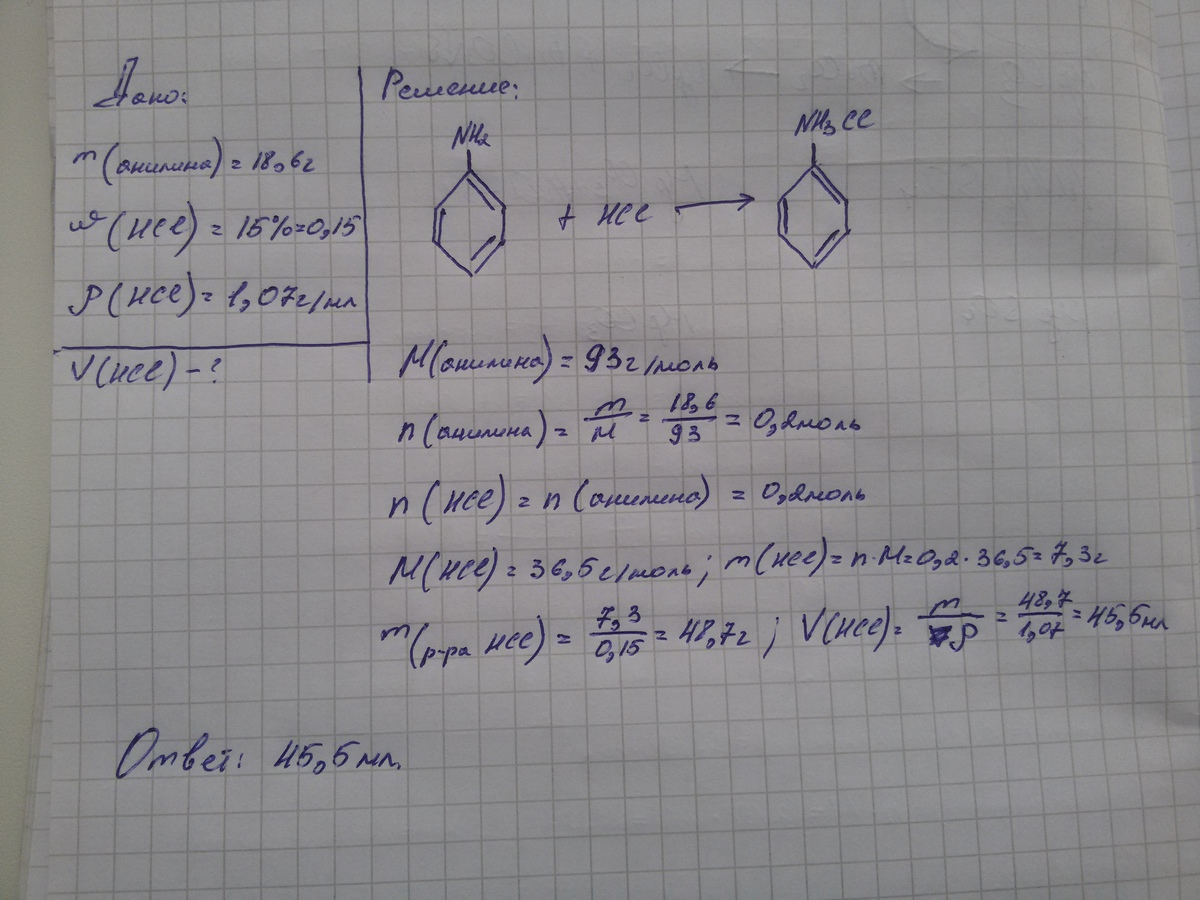 Дано:
m(анилина) = 18,6г
ω(HCl) = 15%=0,15
ρ(HCl) = 1,07г/мл
V(HCl) - ?
Решение:
NH₂
+ HCl ⟶
NH₃Cl
M(анилина) = 93г/моль
n(анилина) = m/M = 18,6/93 = 0,2моль
n(HCl) = n(анилина) = 0,2моль
M(HCl) = 36,5г/моль; m(HCl) = n·M=0,2·36,5=7,3г
m(р-ра HCl) = 7,3/0,15 = 48,7г; V(HCl) = m/ρ = 48,7/1,07 = 45,5мл
Ответ: 45,5мл.